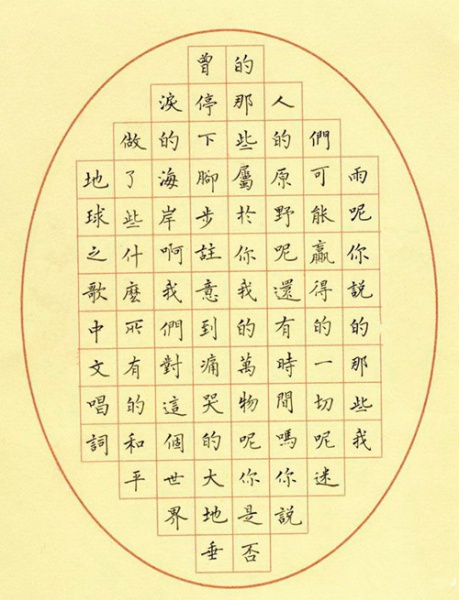 雨呢你說的那些我
們可能贏得的一切呢迷
人的原野呢還有時間嗎你說
的那些屬於你我的萬物呢你是否
曾停下腳步註意到痛哭的大地垂
淚的海岸啊我們對這個世界
做了些什麼所有的和平
地球之歌中文唱詞